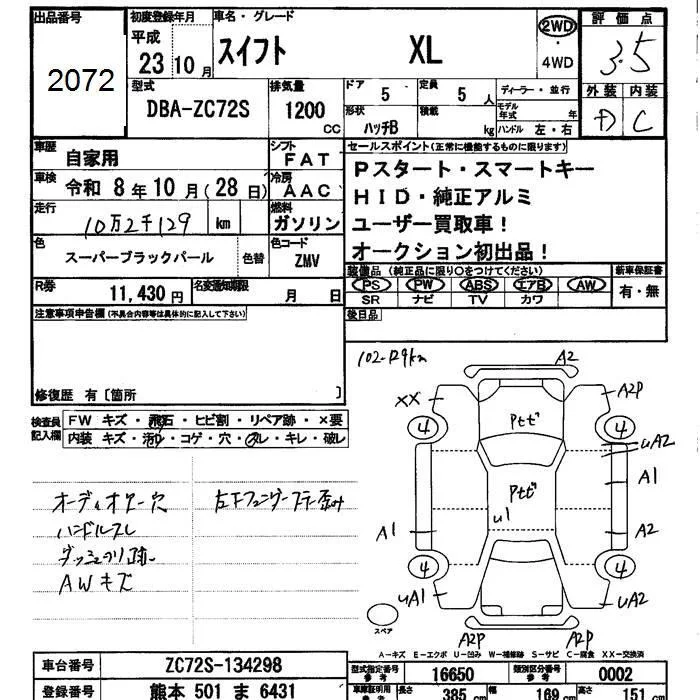 出品番号
2072
初度登録年月
平成
23 10 月
車名・グレード
スイフト XL
2WD
・
4WD
評価点
3.5
外装 内装
D C
型式
DBA-ZC72S
排気量
1200
CC
ドア 5
定員 5 人
形状 ハッチB
積載 kg
ディーラー・並行
モデル年式 年
ハンドル 左・右
車歴 自家用
シフト FAT
車検 令和 8 年 10 月 ( 28 日 )
冷房 AAC
走行 10万2千129 km
燃料 ガソリン
色 スーパーブラックパール
色替
色コード ZMV
R券 11,430 円
名変通知期限 月 日
セールスポイント(正常に機能するものに限ります)
Pスタート・スマートキー
HID・純正アルミ
ユーザー買取車!
オークション初出品!
装備品 (純正品に限り○をつけてください)
PS PW ABS エアB AW
SR ナビ TV カワ
新車保証書
有・無
後日品
注意事項申告欄 (不具合内容等は具体的に記入して下さい)
修復歴 有〔箇所 〕
検査員記入欄
FW キズ・飛石・ヒビ割・リペア跡・×要
内装 キズ・汚れ・コゲ・穴・スレ・キレ・破レ
オーディオレス穴
ハンドルスレ
AWキズ
102-129km
A2
XX
A2P
4
4
Ptビ
uA2
A1
Ptビ
u1
A1
A2
4
4
uA1
uA2
スペア
A2P
A2P
A-キズ E-エクボ U-凹み W-補修跡 S-サビ C-腐食 XX-交換済
車台番号 ZC72S-134298
登録番号 熊本 501 ま 6431
型式指定番号 参考 16650
類別区分番号 参考 0002
車庫証明用 参考
長さ 385 cm
幅 169 cm
高さ 151 cm